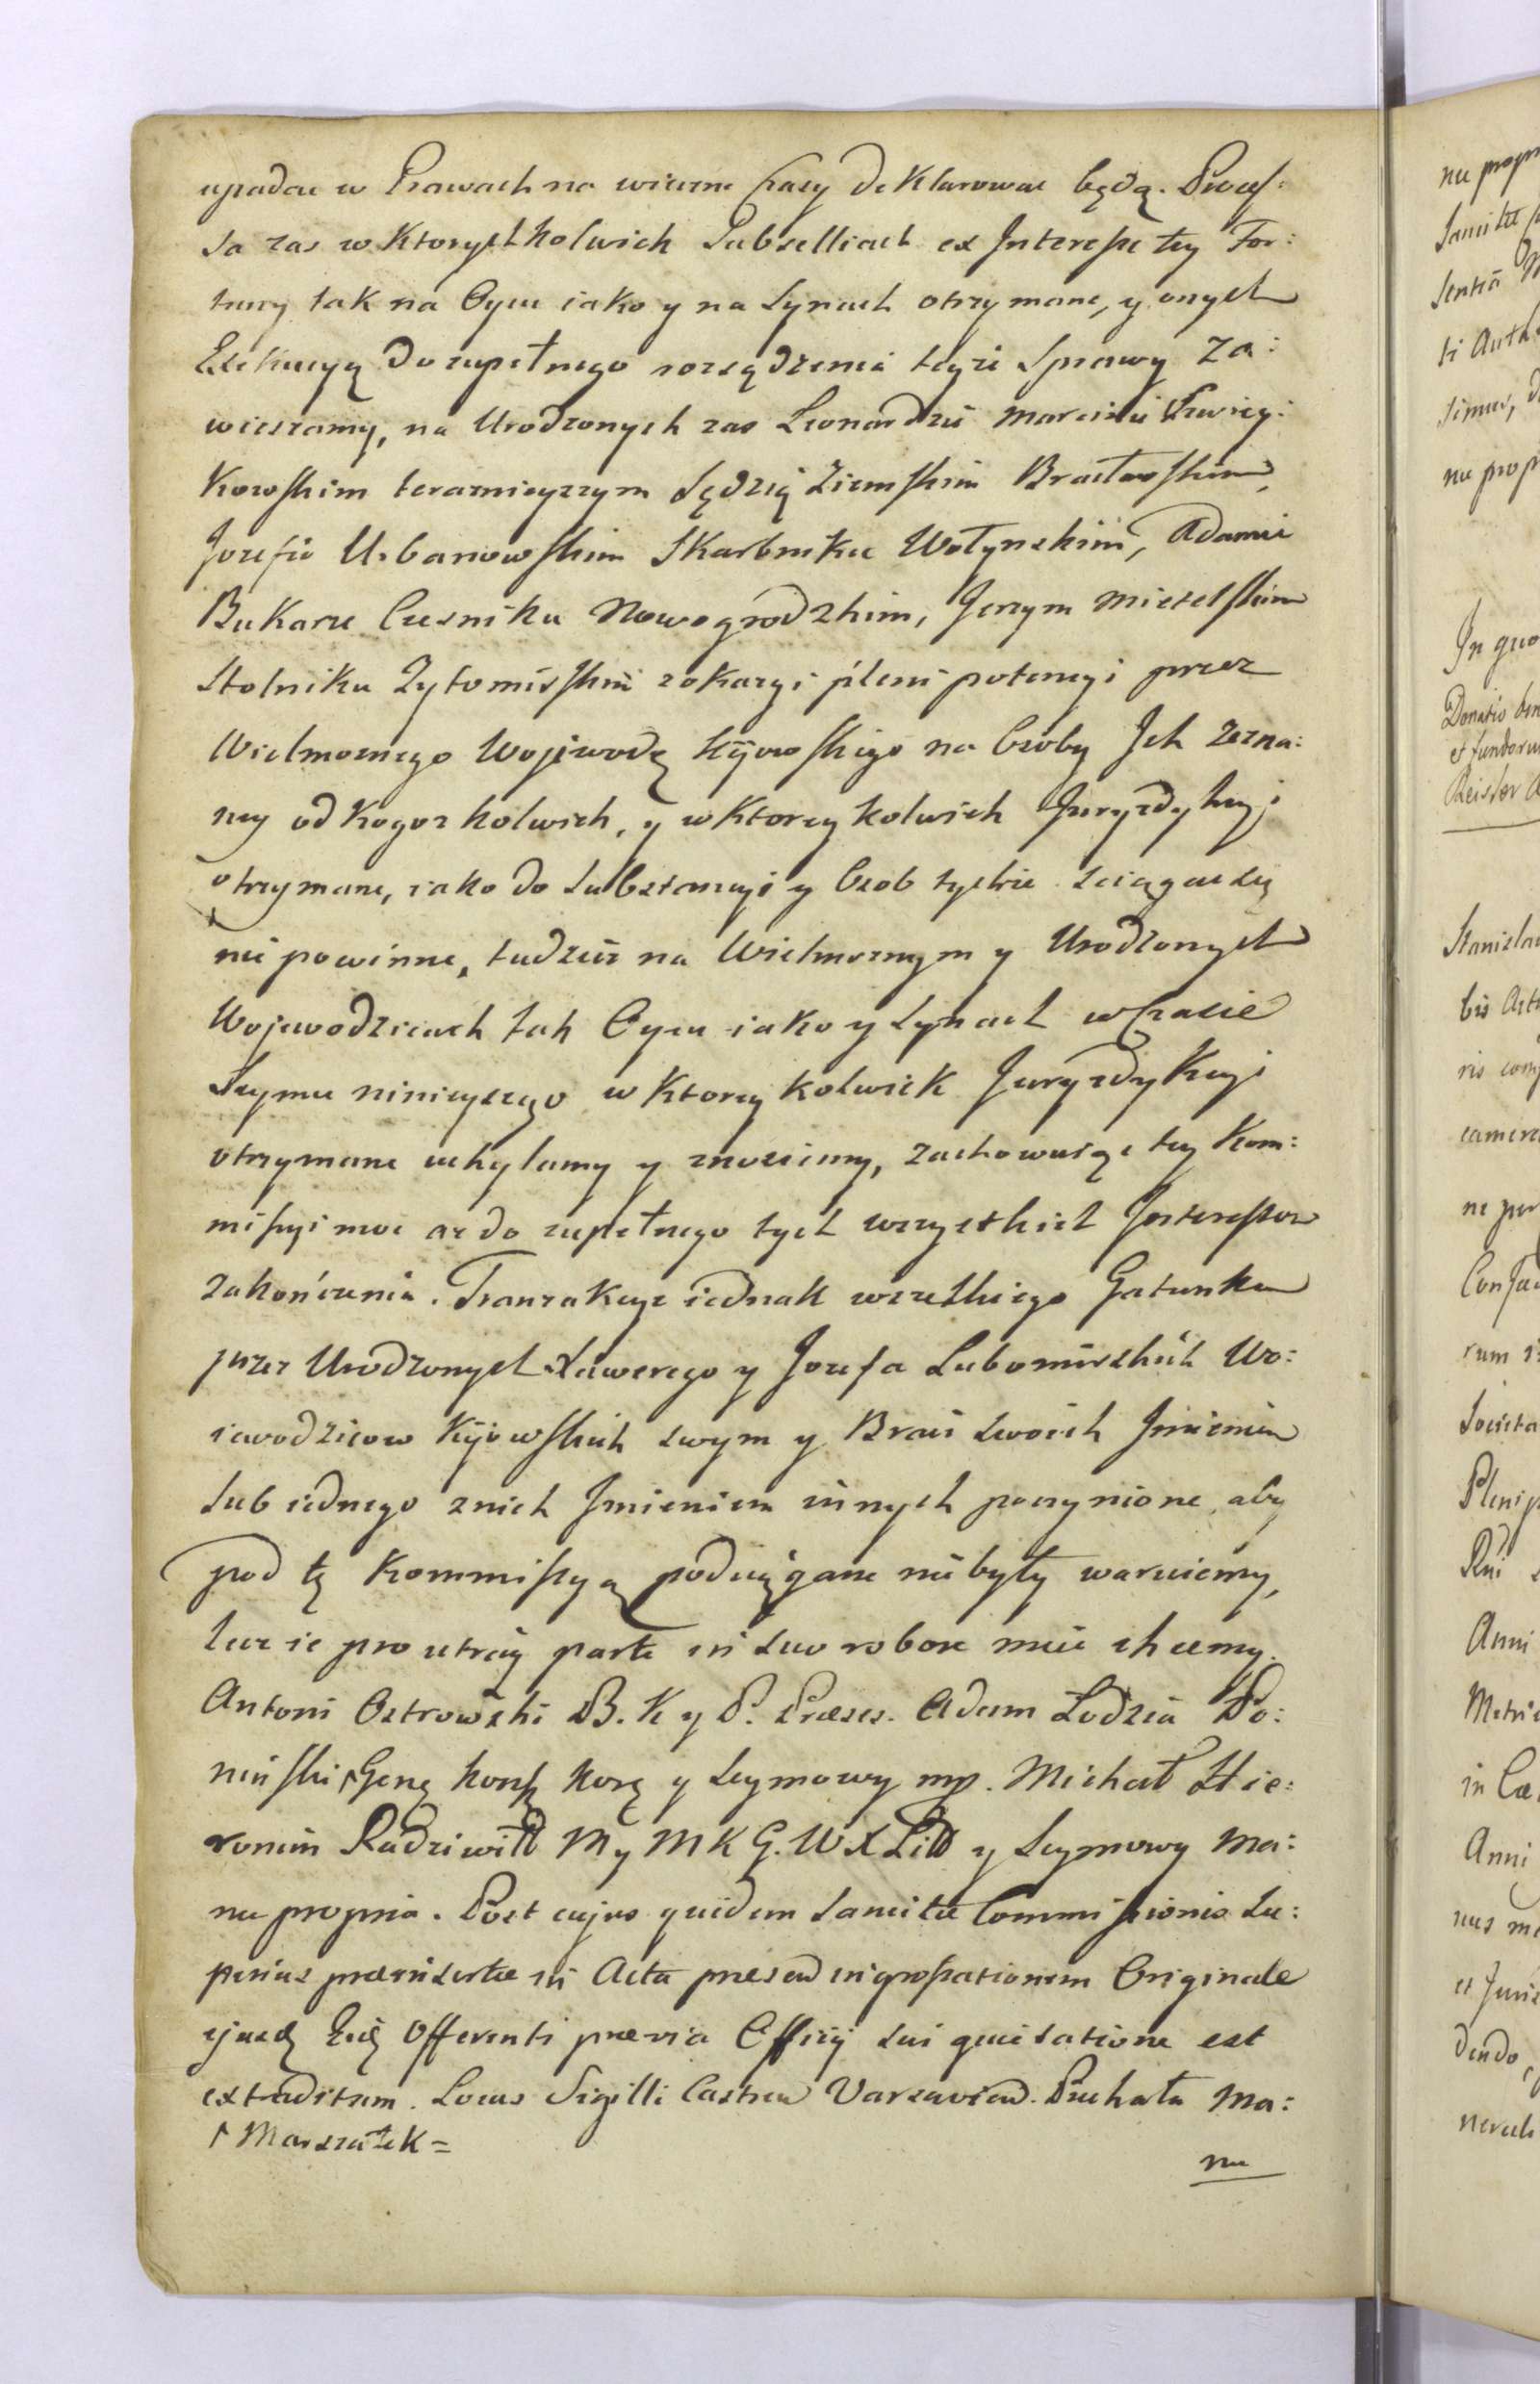 upadac w Prawach na wieczne Czasy deklarowac będą. Process:
sa zas w ktorychkolwiek Subselliach ex Interesse tey For:
tuny tak na Oycu iako y na Synach otrzymane, y onych
Exekucyą do zupełnego rozsądzenia teyze Sprawy Za:
wieszamy, na Urodzonych zas Leonardzie Marcinie Swiey:
kowskim teraznieyszym Sędzią Ziemskim Bracławskim,
Jozefie Urbanowskim Skarbniku Wołynskim, Adamie
Bukarze Czesniku Nowogrodzkim, Jerzym Mietelskim
Stolniku Zytomirskim zokazyi plenipotencyi przez
Wielmoznego Wojewodę Kijowskiego na Osoby Jch zezna:
ney od kogoz kolwiek, y w ktorey kolwiek Juryzdykcyi
otrzymane, iako do Substancyi y Osob tychze sciągac się
nie powinne, tudziesz na Wielmoznym y Urodzonych
Wojewodzicach tak Oycu iako y Synach w Czasie
Seymu ninieyszego w ktorey kolwiek Juryzdykcyi
otrzymane uchylamy y znosiemy, zachowuiąc tey Kom:
missyi moc az do zupełnego tych wszystkich Interessow
zakonczenia. Tranzakcye iednak wszelkiego Gatunku
przez Urodzonych Xawerego y Jozefa Lubomirskich Wo:
iewodzicow Kijowskich swym y Braci swoich Jmieniem
lub iednego znich Jmieniem innych poczynione, aby
pod tę Kommissyą podciągane nie były waruiemy,
lecz ie pro utraq parte in suo robore miec chcemy.
Antoni Ostrowski B. K y P. Præses. Adam Łodzia Po:
niński, ↑ Genę Konfę Korę y Seymowy mp. Michał Hie:
ronim Radziwiłł M y M K G. W X Litt y Seymowy Ma:
nu propria. Post cujus quidem Sancitæ Commissionis Su:
perius præinsertæ in Acta præsen ingrossationem Originale
ejusdę Eidę Offerenti prævia Officij sui quietatione est
extraditum. Locus Sigilli Castren Varsavien. Puchała Ma:
↑ Marszałek =
nu